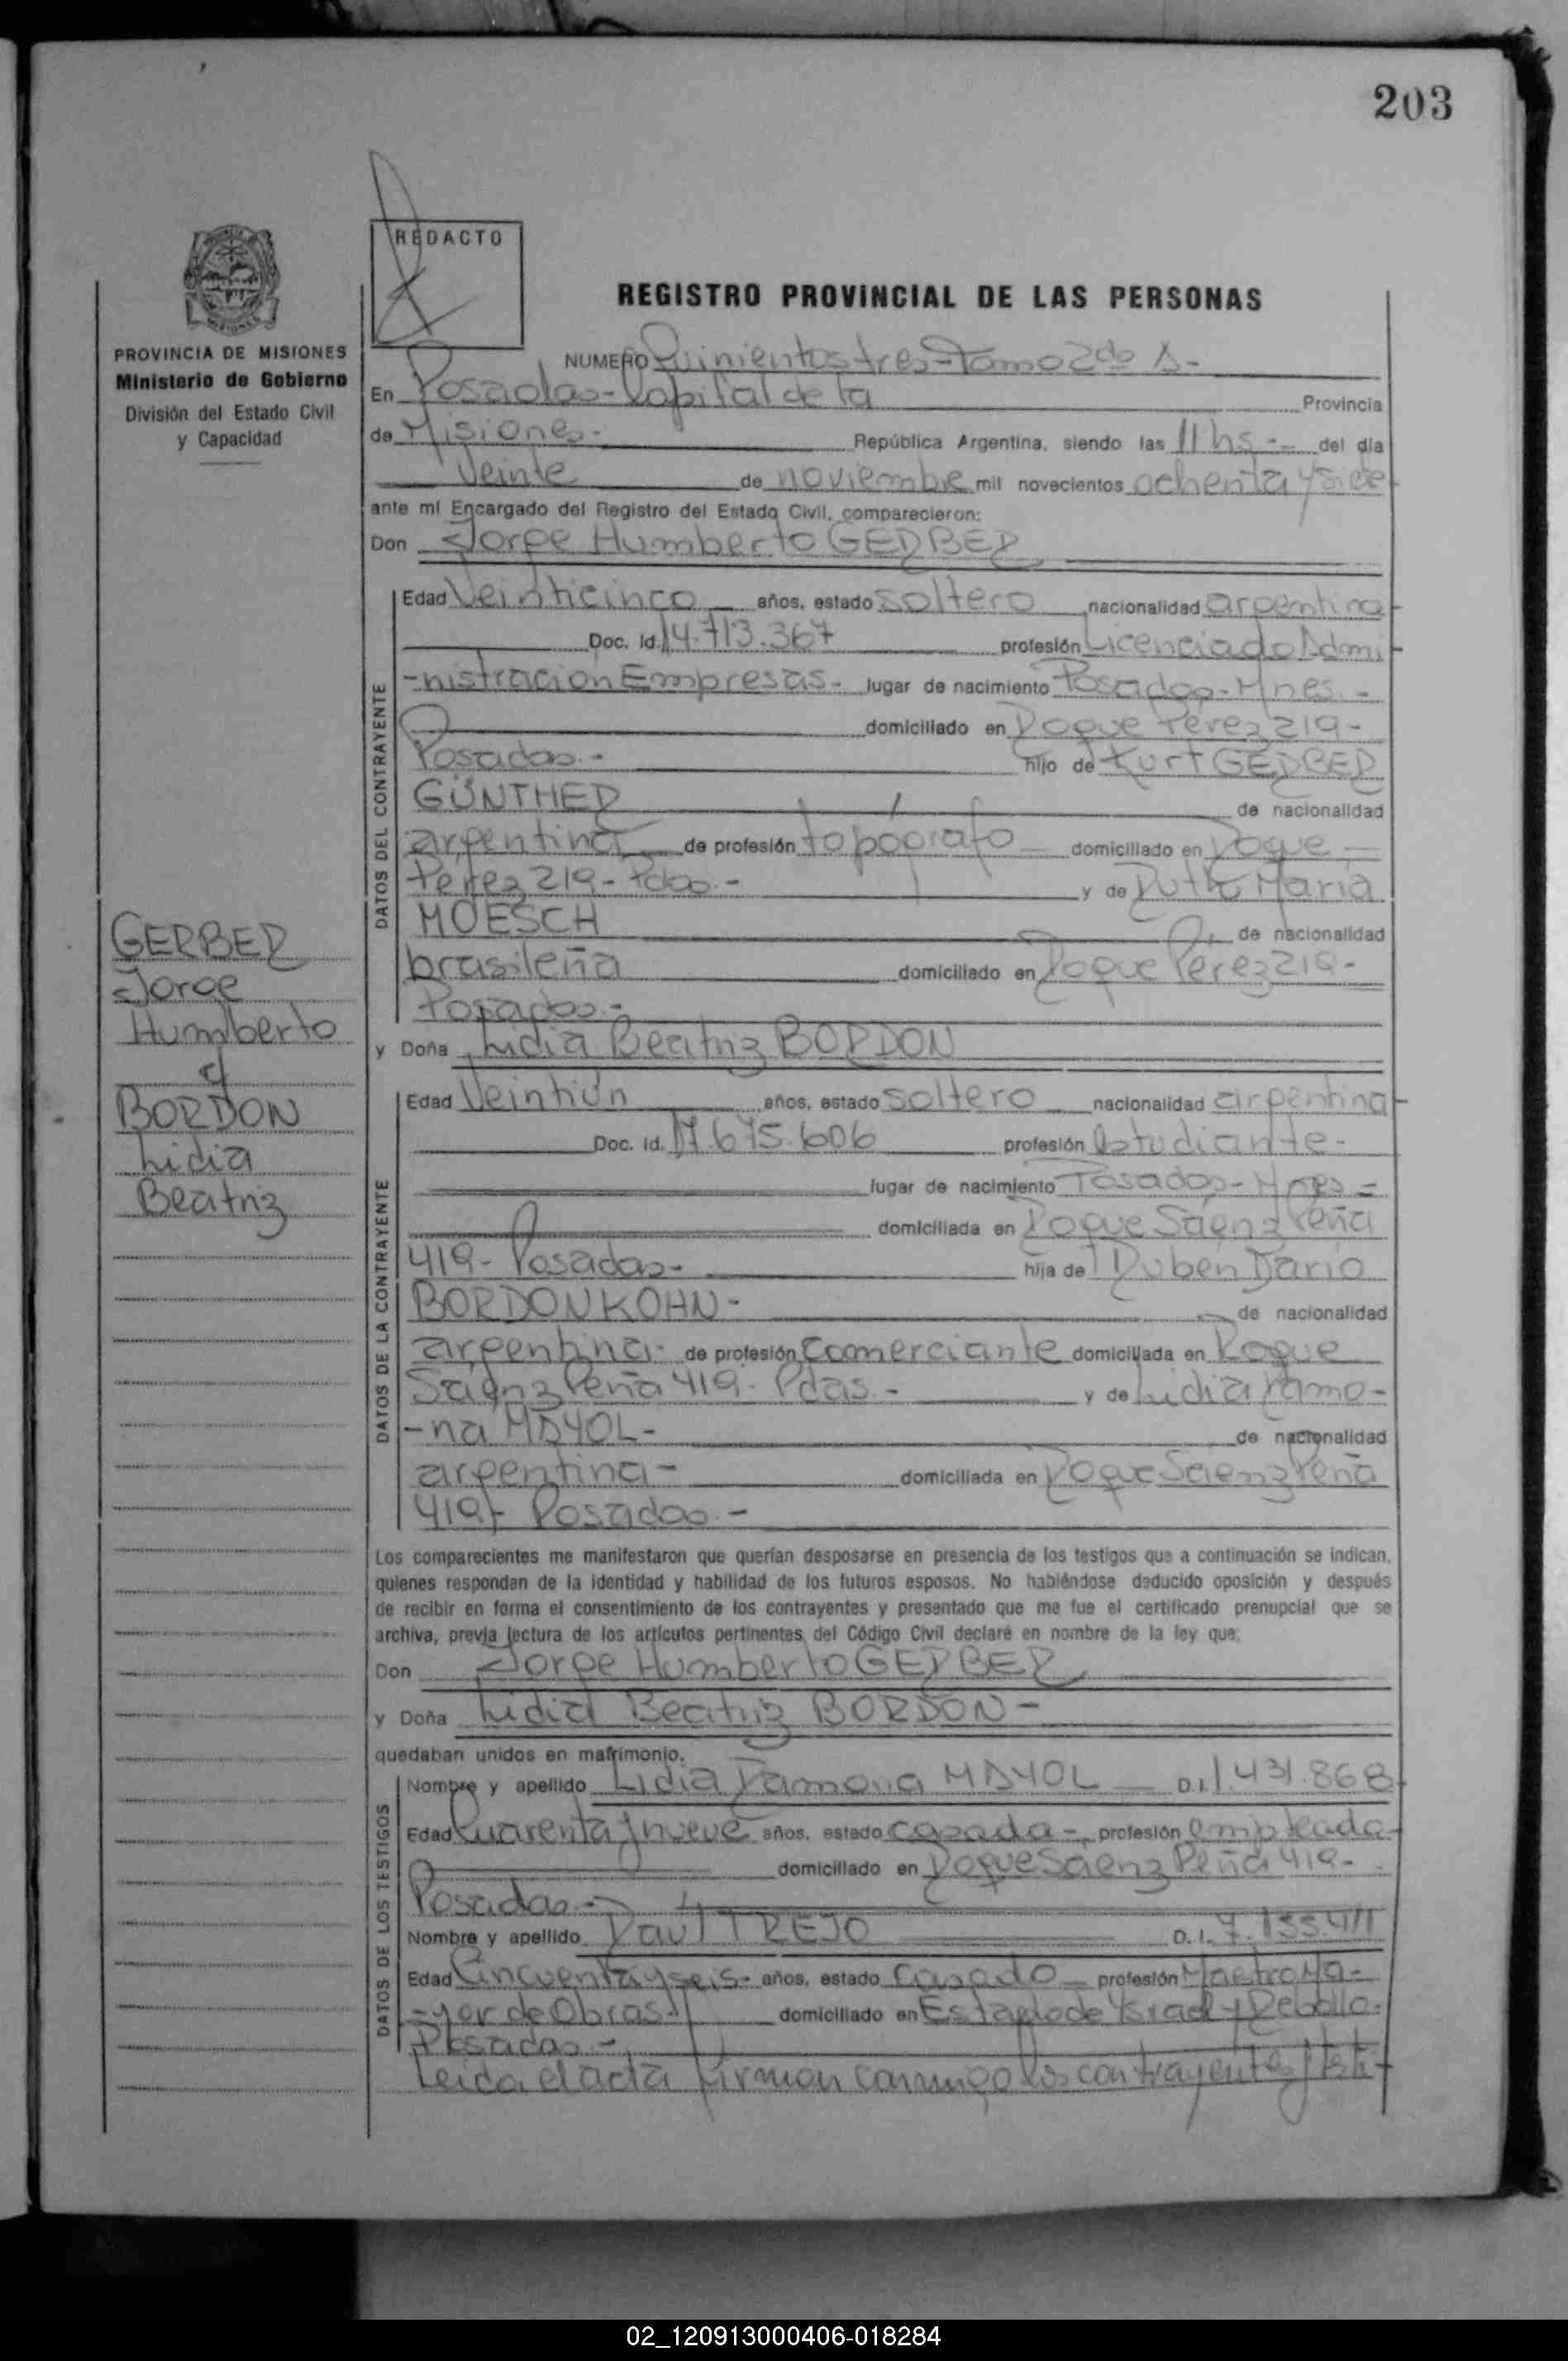 203
REDACTO
PROVINCIA DE MISIONES
Ministerio de Gobierno
División del Estado Civil
y Capacidad
GERBER
Jorge
Humberto
c/
BORDON
Lidia
Beatriz
REGISTRO PROVINCIAL DE LAS PERSONAS
NUMERO Quinientos tres - Tomo 2do A-
En Posadas - Capital de la Provincia
de Misiones.- República Argentina, siendo las 11 hs.- del día
Veinte de noviembre mil novecientos ochenta y siete
ante mí Encargado del Registro del Estado Civil, comparecieron:
Don Jorge Humberto GERBER
DATOS DEL CONTRAYENTE
Edad Veinticinco años, estado soltero nacionalidad argentina
Doc. Id. 14.713.367 profesión Licenciado Admi
-nistracion Empresas- lugar de nacimiento Posadas - Mnes.-
domiciliado en Roque Perez 219-
Posadas.- hijo de Kurt GERBER
GÜNTHER de nacionalidad
argentina de profesión topógrafo domiciliado en Roque
Perez 219 - Pdas.- y de Ruth Maria
MOESCH de nacionalidad
brasileña domiciliado en Roque Perez 219-
Posadas.-
y Doña Lidia Beatriz BORDON
DATOS DE LA CONTRAYENTE
Edad Veintiún años, estado soltero nacionalidad argentina
Doc. Id. 17.675.606 profesión Estudiante-
lugar de nacimiento Posadas - Mnes-
domiciliada en Roque Saenz Peña
419- Posadas- hija de Ruben Dario
BORDON KOHN- de nacionalidad
argentina- de profesión Comerciante domiciliada en Roque
Saenz Peña 419- Pdas.- y de Lidia Ramo-
-na MAYOL- de nacionalidad
argentina- domiciliada en Roque Saenz Peña
419- Posadas.-
Los comparecientes me manifestaron que querían desposarse en presencia de los testigos que a continuación se indican,
quienes responden de la identidad y habilidad de los futuros esposos. No habiéndose deducido oposición y después
de recibir en forma el consentimiento de los contrayentes y presentado que me fue el certificado prenupcial que se
archiva, previa lectura de los artículos pertinentes del Código Civil declaré en nombre de la ley que:
Don Jorge Humberto GERBER
y Doña Lidia Beatriz BORDON-
quedaban unidos en matrimonio.
DATOS DE LOS TESTIGOS
Nombre y apellido Lidia Ramona MAYOL D.I. 1.431.868
Edad Cuarenta y nueve años, estado casada- profesión empleada-
domiciliado en Roque Saenz Peña 419-
Posadas-
Nombre y apellido Raul TREJO D.I. 7.135.411
Edad Cincuenta y seis- años, estado Casado profesión Maetro Ma-
-yor de Obras- domiciliado en Estado de Ysrael y Rebollo.
Posadas-
Leida el acta firman conmigo los contrayentes y testi-
02_120913000406-018284